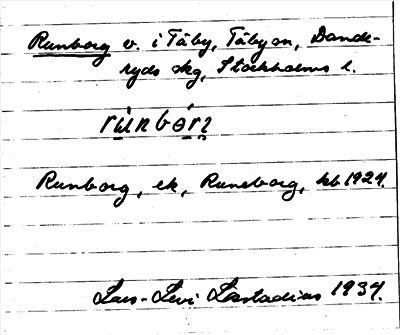 Runborg v. i Täby, Täby sn, Dande-
ryds skg, Stockholms l.
rùnbórj
Runborg, ek, Runeborg, kb 1924.
Lars-Levi Læstadius 1934.